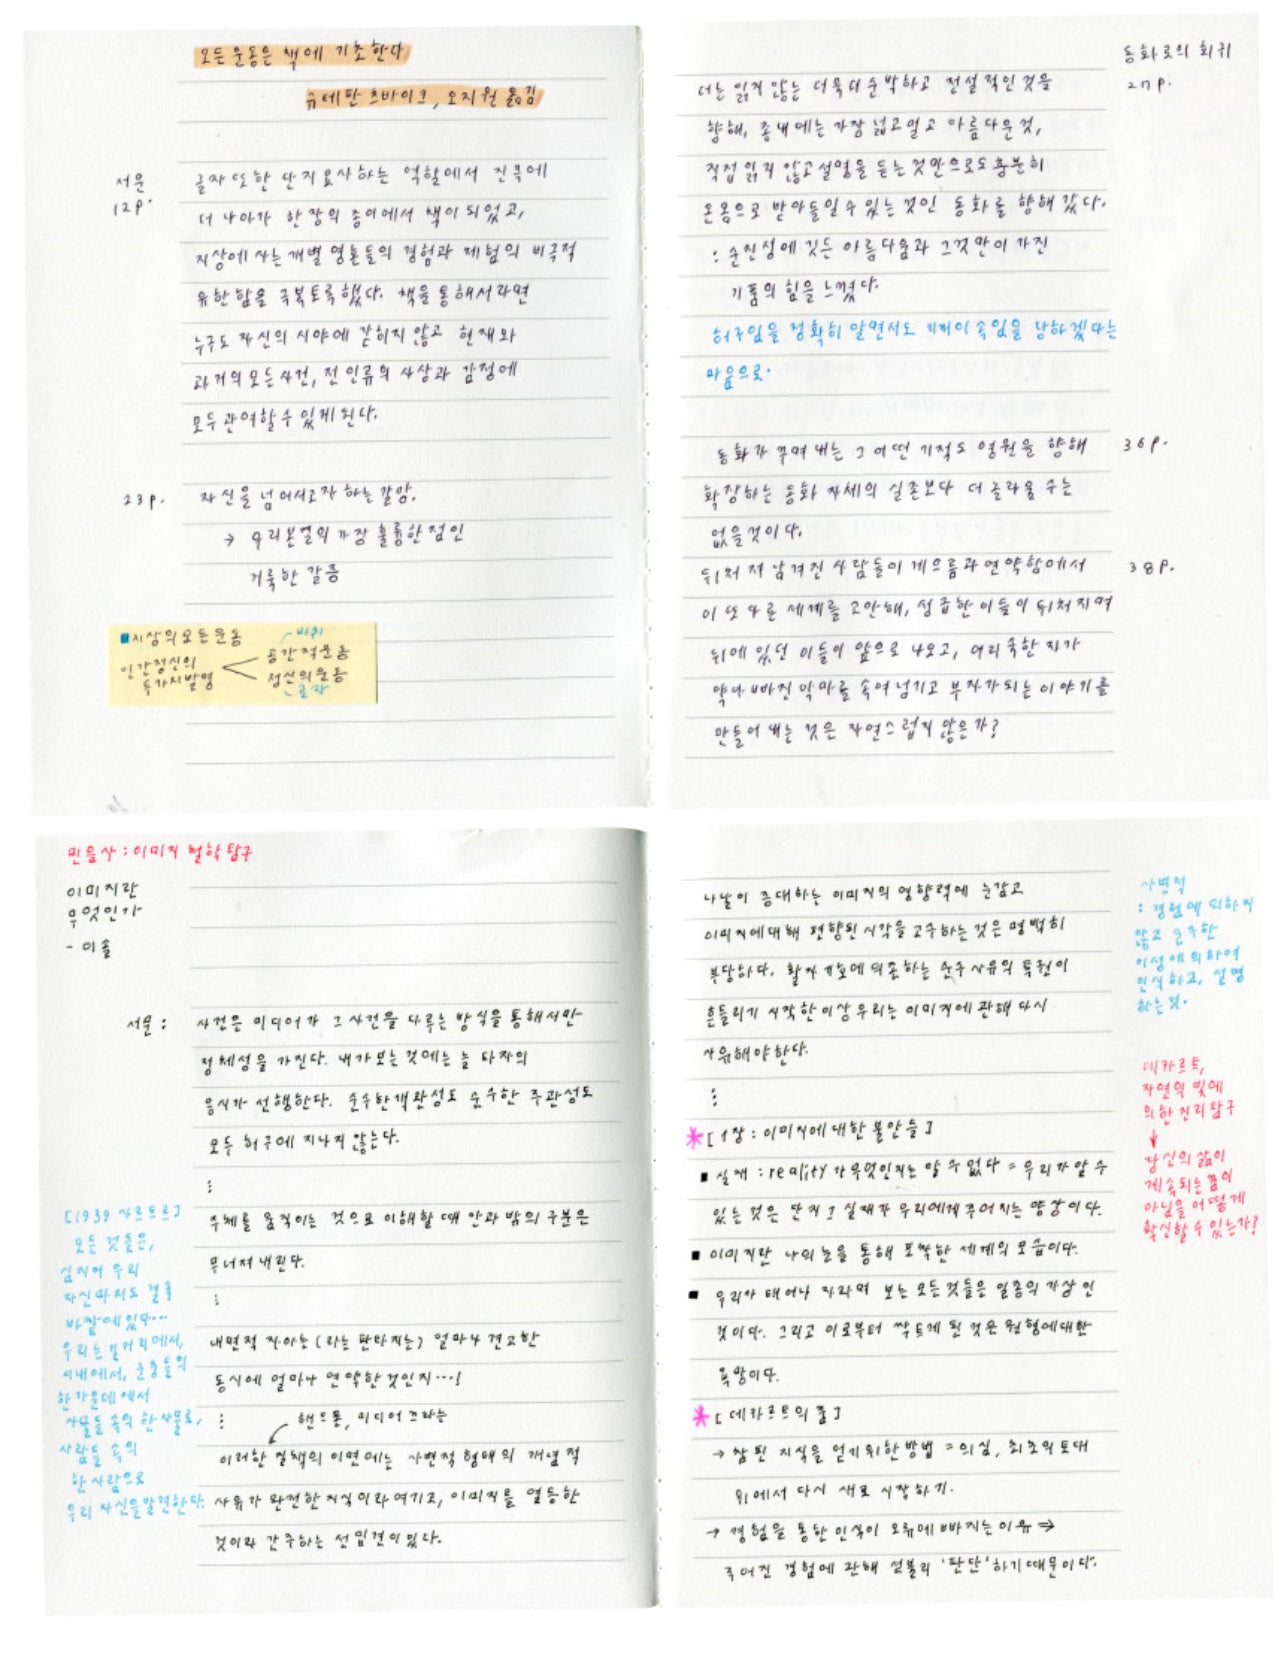 모든 운동은 책에 기초한다
슈테판 츠바이크, 오지원 옮김
서문
12p.
글자 또한 단지 묘사하는 역할에서 진득에
더 나아가 한 장의 종이에서 책이 되었고,
지상에 사는 개별 영혼들의 경험과 체험의 비극적
유한함을 극복토록 했다. 책을 통해서라면
누구도 자신의 시야에 갇히지 않고 현재와
과거의 모든 사건, 전 인류의 사상과 감정에
모두 관여할 수 있게 된다.
23p.
자신을 넘어서고자 하는 갈망.
→ 우리 본연의 가장 훌륭한 점인
거룩한 갈증
■지상의 모든 운동
바퀴
인간정신의
두가지 발명
공간적 운동
정신의 운동
글자
동화로의 회귀
27p.
더는 읽지 않는 더욱 더 순박하고 전설적인 것을
향해, 종내에는 가장 넓고 멀고 아름다운 것,
직접 읽지 않고 설명을 듣는 것만으로도 충분히
온몸으로 받아들일 수 있는 것인 동화를 향해 갔다.
: 순진성에 깃든 아름다움과 그것만이 가진
기품의 힘을 느꼈다.
허구임을 정확히 알면서도 기꺼이 속임을 당하겠다는
마음으로.
동화가 꾸며 내는 그 어떤 기적도 영원을 향해
36p.
확장하는 동화 자체의 실존보다 더 놀라울 수는
없을 것이다.
뒤처져 남겨진 사람들이 게으름과 연약함에서
38p.
이 또 다른 세계를 고안해, 성급한 이들이 뒤처지며
뒤에 있던 이들이 앞으로 나오고, 어리숙한 자가
약아빠진 악마를 속여 넘기고 부자가 되는 이야기를
만들어 내는 것은 자연스럽지 않은가?
민음사 : 이미지 철학 탐구
이미지란
무엇인가
- 이솔
서문 :
사건은 미디어가 그 사건을 다루는 방식을 통해서만
정체성을 가진다. 내가 보는 것에는 늘 타자의
응시가 선행한다. 순수한 객관성도 순수한 주관성도
모두 허구에 지나지 않는다.
⋮
주체를 움직이는 것으로 이해할 때 안과 밖의 구분은
무너져 내린다.
⋮
내면적 자아는 (라는 판타지는) 얼마나 견고한
동시에 얼마나 연약한 것인지…!
⋮
핸드폰, 미디어 크라는
이러한 질책의 이면에는 사변적 형태의 개념적
사유가 완전한 지식이라 여기고, 이미지를 열등한
것이라 간주하는 선입견이 있다.
[1939 사르트르]
모든 것들은,
심지어 우리
자신마저도 결국
바깥에 있다…
우리는 길거리에서,
시내에서, 군중들의
한가운데에서
사물들 속의 한 사물로,
사람들 속의
한 사람으로
우리 자신을 발견한다.
나날이 증대하는 이미지의 영향력에 눈감고
이미지에 대해 편향된 시각을 고수하는 것은 명백히
부당하다. 활자 기호에 의존하는 순수 사유의 특권이
흔들리기 시작한 이상 우리는 이미지에 관해 다시
사유해야 한다.
⋮
*[1장 : 이미지에 대한 불안들]
▪ 실재 : reality가 무엇인지는 알 수 없다 = 우리가 알 수
있는 것은 단지 그 실재가 우리에게 주어지는 양상이다.
▪ 이미지란 나의 눈을 통해 포착한 세계의 모습이다.
▪ 우리가 태어나 자라며 보는 모든 것들은 일종의 가상인
것이다. 그리고 이로부터 싹트게 된 것은 원형에 대한
욕망이다.
*[데카르트의 꿈]
→ 참된 지식을 얻기 위한 방법 = 의심, 최초의 토대
위에서 다시 새로 시작하기.
→ 경험을 통한 인식이 오류에 빠지는 이유 ⇒
주어진 경험에 관해 섣불리 '판단'하기 때문이다.
사변적
: 경험에 의하지
않고 순수한
이성에 의하여
인식하고, 설명
하는 것.
데카르트,
자연의 빛에
의한 진리탐구
↓
당신의 삶이
계속되는 꿈이
아님을 어떻게
확신할 수 있는가?